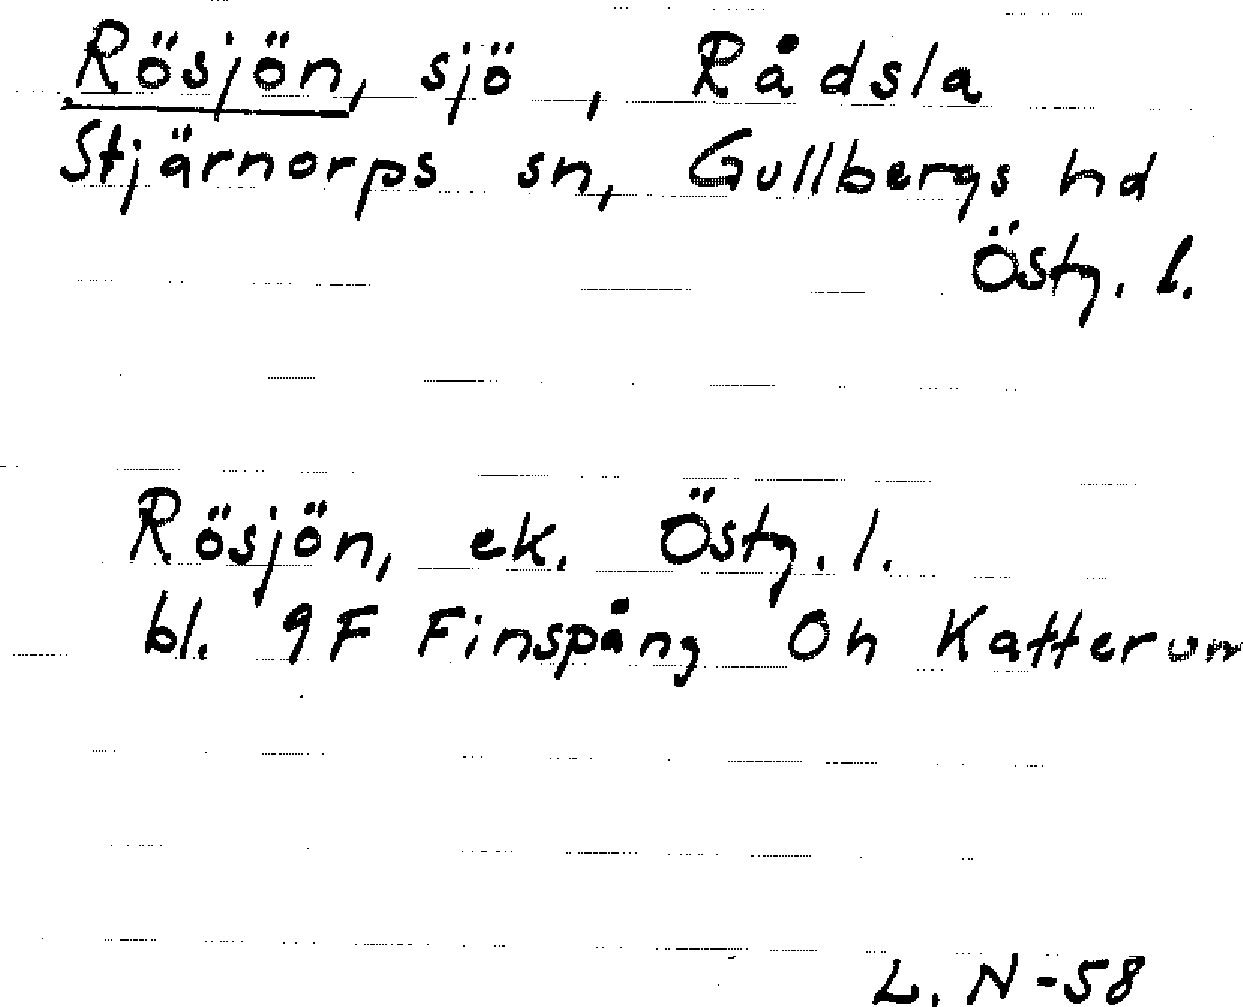 Rösjön, sjö , Rådsla
Stjärnorps sn, Gullbergs hd
Östg. l.
Rösjön, ek. Östg. l.
bl. 9F Finspång Oh Katterum
L. N-58